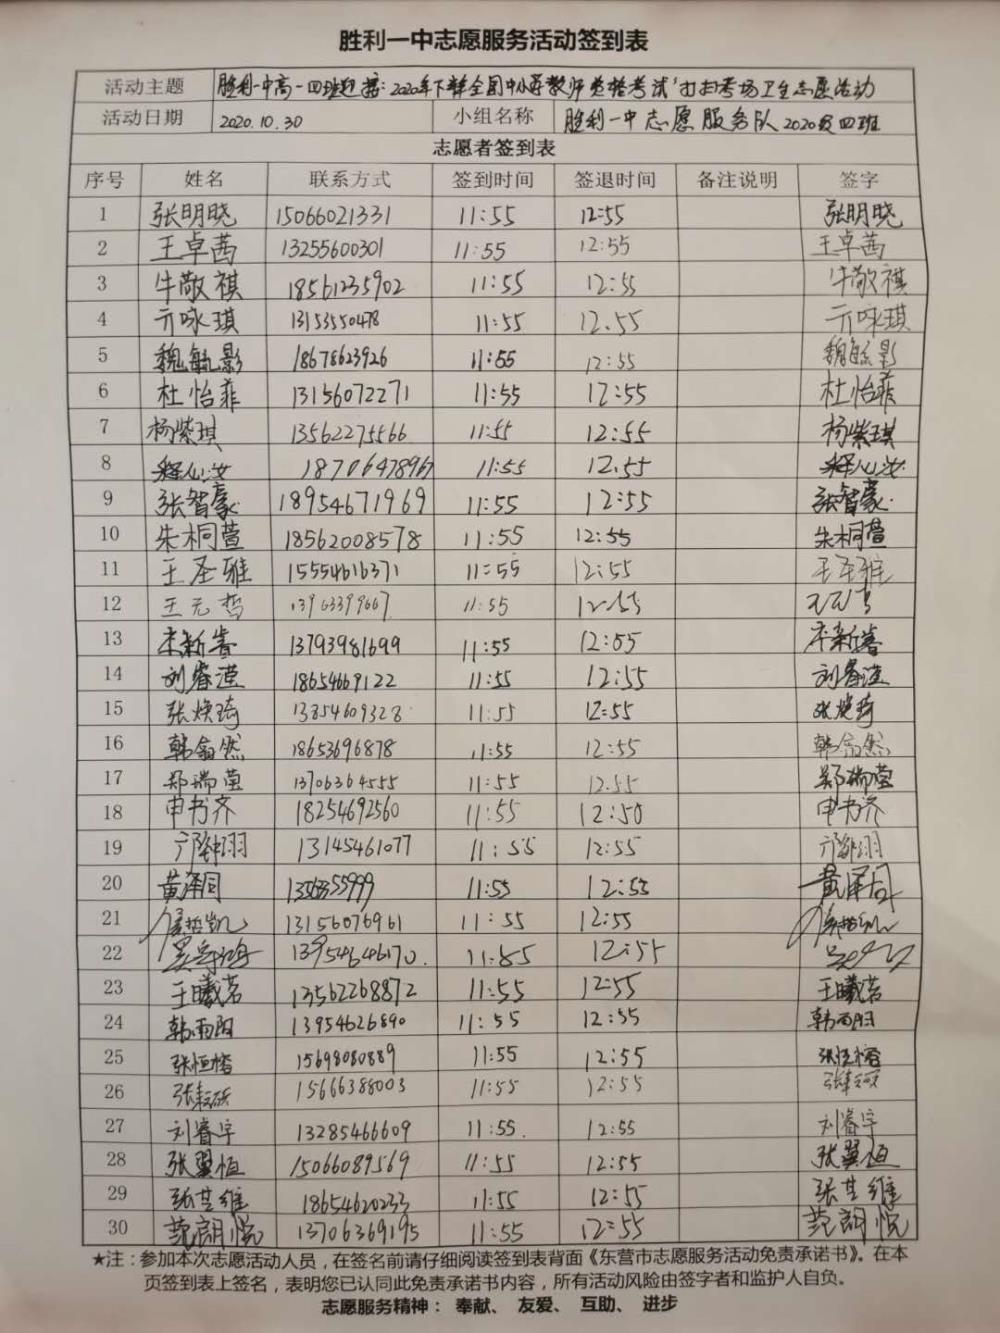 胜利一中志愿服务活动签到表
活动主题 胜利一中高一四班迎接:2020年下半年全国中小学教师资格考试"打扫考场卫生志愿活动
活动日期 2020.10.30 小组名称 胜利一中志愿服务队2020级四班
志愿者签到表
序号 姓名 联系方式 签到时间 签退时间 备注说明 签字
1 张明晓 15066021331 11:55 12:55 张明晓
2 王卓茜 13255600301 11:55 12:55 王卓茜
3 牛敬祺 18561235902 11:55 12:55 牛敬祺
4 亓咏琪 13153550478 11:55 12.55 亓咏琪
5 魏毓影 18678623926 11:55 12:55 魏毓影
6 杜怡菲 13156072271 11:55 12:55 杜怡菲
7 杨紫琪 13562275566 11:55 12:55 杨紫琪
8 18706478967 11:55 12.55
9 张智豪 18954671969 11:55 12:55 张智豪
10 朱桐萱 18562008578 11:55 12:55 朱桐萱
11 王圣雅 15554616371 11:55 12:55 王圣雅
12 王元哲 11:55 12:55
13 13793981699 11:55 12:55
14 刘睿滢 18654669122 11:55 12:55 刘睿滢
15 张焕琦 13854609328 11:55 12:55 张焕琦
16 韩翕然 18653696878 11:55 12:55 韩翕然
17 郑瑞莹 13706364555 11:55 12.55 郑瑞莹
18 申书齐 18254692560 11:55 12:50 申书齐
19 13145461077 11:55 12:55
20 黄泽同 11:55 12:55 黄泽同
21 13156076961 11:55 12:55
22 13954646170. 11:55 12:55
23 王曦茗 13562268872 11:55 12:55 王曦茗
24 韩雨阳 13954626890 11:55 12:55 韩雨阳
25 张恒榕 15698080889 11:55 12:55 张恒榕
26 15666388003 11:55 12:55
27 刘睿宇 13285466609 11:55. 12:55 刘睿宇
28 张翼恒 15066089569 11:55 12:55 张翼恒
29 张芝维 18654620233 11:55 12:55 张芝维
30 范朗悦 13706369195 11:55 12:55 范朗悦
★注：参加本次志愿活动人员，在签名前请仔细阅读签到表背面《东营市志愿服务活动免责承诺书》。在本
页签到表上签名，表明您已认同此免责承诺书内容，所有活动风险由签字者和监护人自负。
志愿服务精神： 奉献、 友爱、 互助、 进步